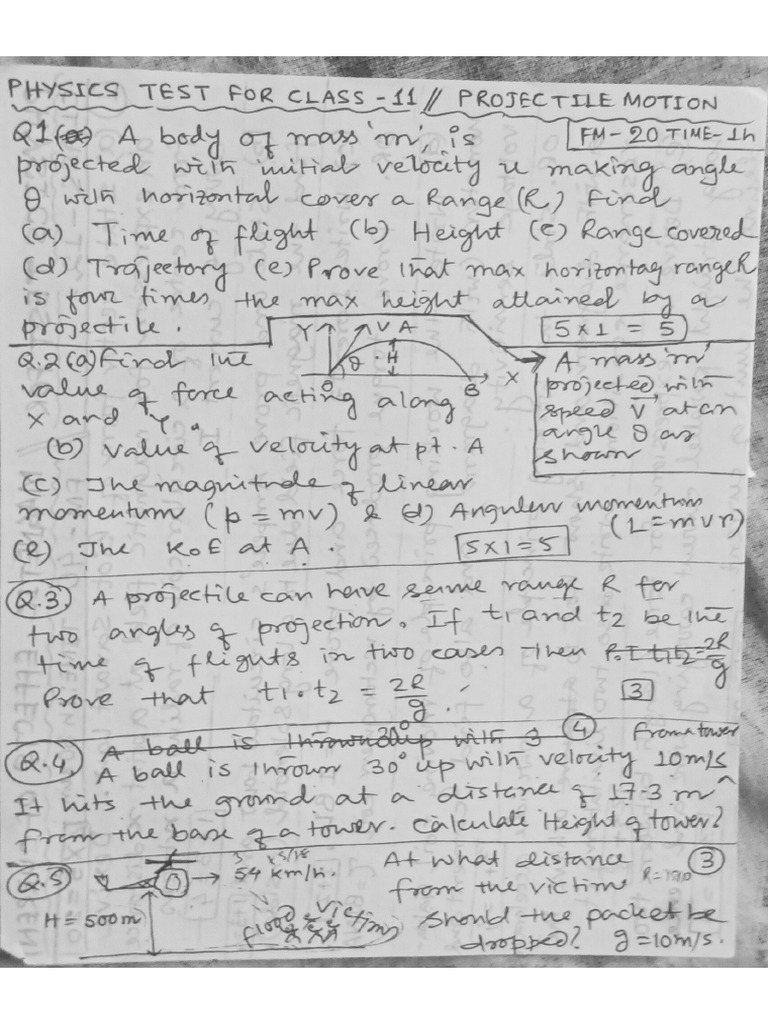 PHYSICS TEST FOR CLASS-11 // PROJECTILE MOTION
FM-20 TIME-1h
Q1 A body of mass 'm', is
projected with initial velocity u making angle
θ with horizontal cover a Range (R) find
(a) Time of flight (b) Height (c) Range covered
(d) Trajectory (e) Prove that max horizontal range R
is four times, the max height attained by a
projectile. 5 x 1 = 5
Y V A
θ H
O B X
Q.2 (a) Find the
value of force acting along
X and "Y"
(b) Value of velocity at pt. A
(c) The magnitude of linear
momentum (p = mv) & (d) Angular momentum
(L = mvr)
(e) The K.E at A. 5x1=5
A mass 'm'
projected with
speed V at an
angle θ as
shown
Q.3, A projectile can have same range R for
two angles of projection. If t1 and t2 be the
time of flights in two cases then P.T t1t2 = 2R/g
Prove that t1.t2 = 2R/g. 3
Q.4, A ball is thrown up with 4 from a tower
A ball is thrown 30° up with velocity 10m/s
It hits the ground at a distance of 17.3 m
from the base of a tower. Calculate Height of tower?
Q.5 54 km/h. x5/18
H = 500m
flood victims
At what distance 3
from the victims
should the packet be
dropped? g=10m/s.